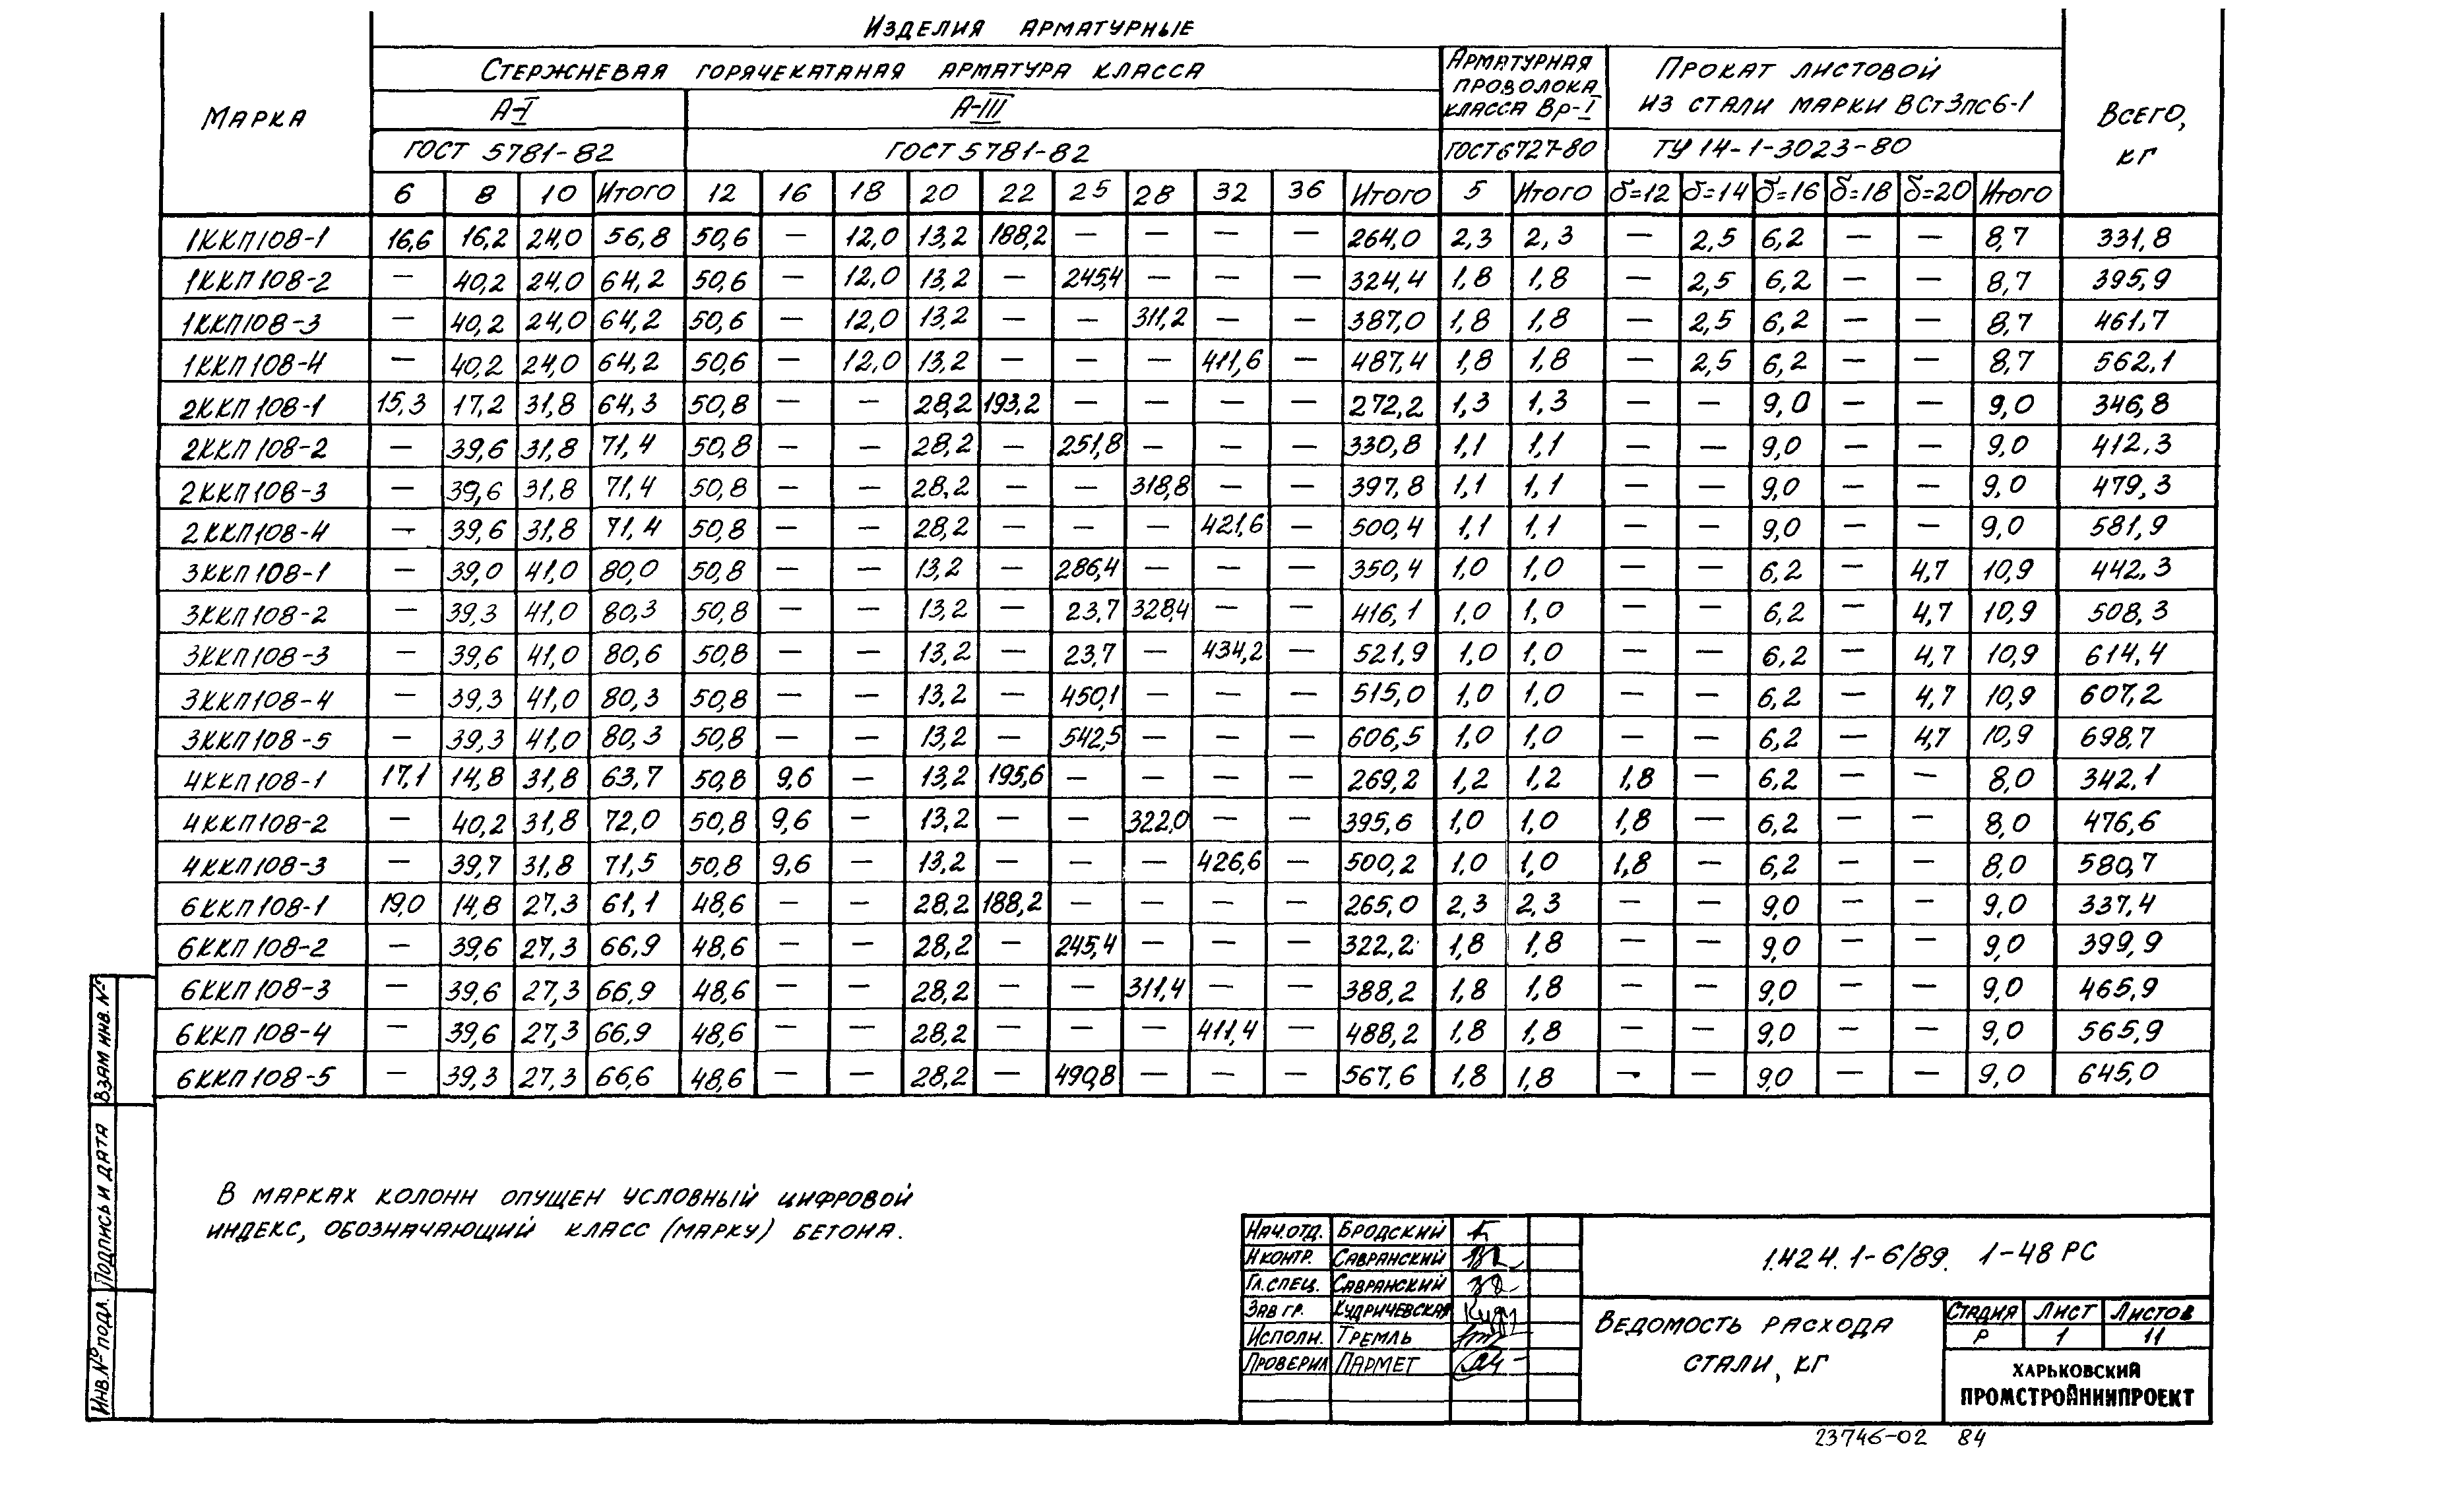 Изделия арматурные
Марка
Стержневая горячекатаная арматура класса
Арматурная проволока класса Вр-I
Прокат листовой из стали марки ВСт3пс6-1
Всего, кг
А-I
А-III
ГОСТ 5781-82
ГОСТ 5781-82
ГОСТ 6727-80
ТУ 14-1-3023-80
6 8 10 Итого 12 16 18 20 22 25 28 32 36 Итого 5 Итого δ=12 δ=14 δ=16 δ=18 δ=20 Итого
1ККП108-1 16,6 16,2 24,0 56,8 50,6 — 12,0 13,2 188,2 — — — — 264,0 2,3 2,3 — 2,5 6,2 — — 8,7 331,8
1ККП108-2 — 40,2 24,0 64,2 50,6 — 12,0 13,2 — 245,4 — — — 324,4 1,8 1,8 — 2,5 6,2 — — 8,7 395,9
1ККП108-3 — 40,2 24,0 64,2 50,6 — 12,0 13,2 — — 311,2 — — 387,0 1,8 1,8 — 2,5 6,2 — — 8,7 461,7
1ККП108-4 — 40,2 24,0 64,2 50,6 — 12,0 13,2 — — — 411,6 — 487,4 1,8 1,8 — 2,5 6,2 — — 8,7 562,1
2ККП108-1 15,3 17,2 31,8 64,3 50,8 — — 28,2 193,2 — — — — 272,2 1,3 1,3 — — 9,0 — — 9,0 346,8
2ККП108-2 — 39,6 31,8 71,4 50,8 — — 28,2 — 251,8 — — — 330,8 1,1 1,1 — — 9,0 — — 9,0 412,3
2ККП108-3 — 39,6 31,8 71,4 50,8 — — 28,2 — — 318,8 — — 397,8 1,1 1,1 — — 9,0 — — 9,0 479,3
2ККП108-4 — 39,6 31,8 71,4 50,8 — — 28,2 — — — 421,6 — 500,4 1,1 1,1 — — 9,0 — — 9,0 581,9
3ККП108-1 — 39,0 41,0 80,0 50,8 — — 13,2 — 286,4 — — — 350,4 1,0 1,0 — — 6,2 — 4,7 10,9 442,3
3ККП108-2 — 39,3 41,0 80,3 50,8 — — 13,2 — 23,7 328,4 — — 416,1 1,0 1,0 — — 6,2 — 4,7 10,9 508,3
3ККП108-3 — 39,6 41,0 80,6 50,8 — — 13,2 — 23,7 — 434,2 — 521,9 1,0 1,0 — — 6,2 — 4,7 10,9 614,4
3ККП108-4 — 39,3 41,0 80,3 50,8 — — 13,2 — 450,1 — — — 515,0 1,0 1,0 — — 6,2 — 4,7 10,9 607,2
3ККП108-5 — 39,3 41,0 80,3 50,8 — — 13,2 — 542,5 — — — 606,5 1,0 1,0 — — 6,2 — 4,7 10,9 698,7
4ККП108-1 17,1 14,8 31,8 63,7 50,8 9,6 — 13,2 195,6 — — — — 269,2 1,2 1,2 1,8 — 6,2 — — 8,0 342,1
4ККП108-2 — 40,2 31,8 72,0 50,8 9,6 — 13,2 — — 322,0 — — 395,6 1,0 1,0 1,8 — 6,2 — — 8,0 476,6
4ККП108-3 — 39,7 31,8 71,5 50,8 9,6 — 13,2 — — — 426,6 — 500,2 1,0 1,0 1,8 — 6,2 — — 8,0 580,7
6ККП108-1 19,0 14,8 27,3 61,1 48,6 — — 28,2 188,2 — — — — 265,0 2,3 2,3 — — 9,0 — — 9,0 337,4
6ККП108-2 — 39,6 27,3 66,9 48,6 — — 28,2 — 245,4 — — — 322,2 1,8 1,8 — — 9,0 — — 9,0 399,9
6ККП108-3 — 39,6 27,3 66,9 48,6 — — 28,2 — — 311,4 — — 388,2 1,8 1,8 — — 9,0 — — 9,0 465,9
6ККП108-4 — 39,6 27,3 66,9 48,6 — — 28,2 — — — 411,4 — 488,2 1,8 1,8 — — 9,0 — — 9,0 565,9
6ККП108-5 — 39,3 27,3 66,6 48,6 — — 28,2 — 490,8 — — — 567,6 1,8 1,8 — — 9,0 — — 9,0 645,0
В марках колонн опущен условный цифровой
индекс, обозначающий класс (марку) бетона.
Взам инв. №
Подпись и дата
Инв. № подл.
Нач.отд. Бродский
Н контр. Савранский
Гл. спец. Савранский
Зав гр. Кудричевская
Исполн. Тремль
Проверил Пармет
1.424.1-6/89. 1-48 РС
Ведомость расхода
стали, кг
Стадия Лист Листов
Р 1 11
ХАРЬКОВСКИЙ
ПРОМСТРОЙНИИПРОЕКТ
23746-02 84